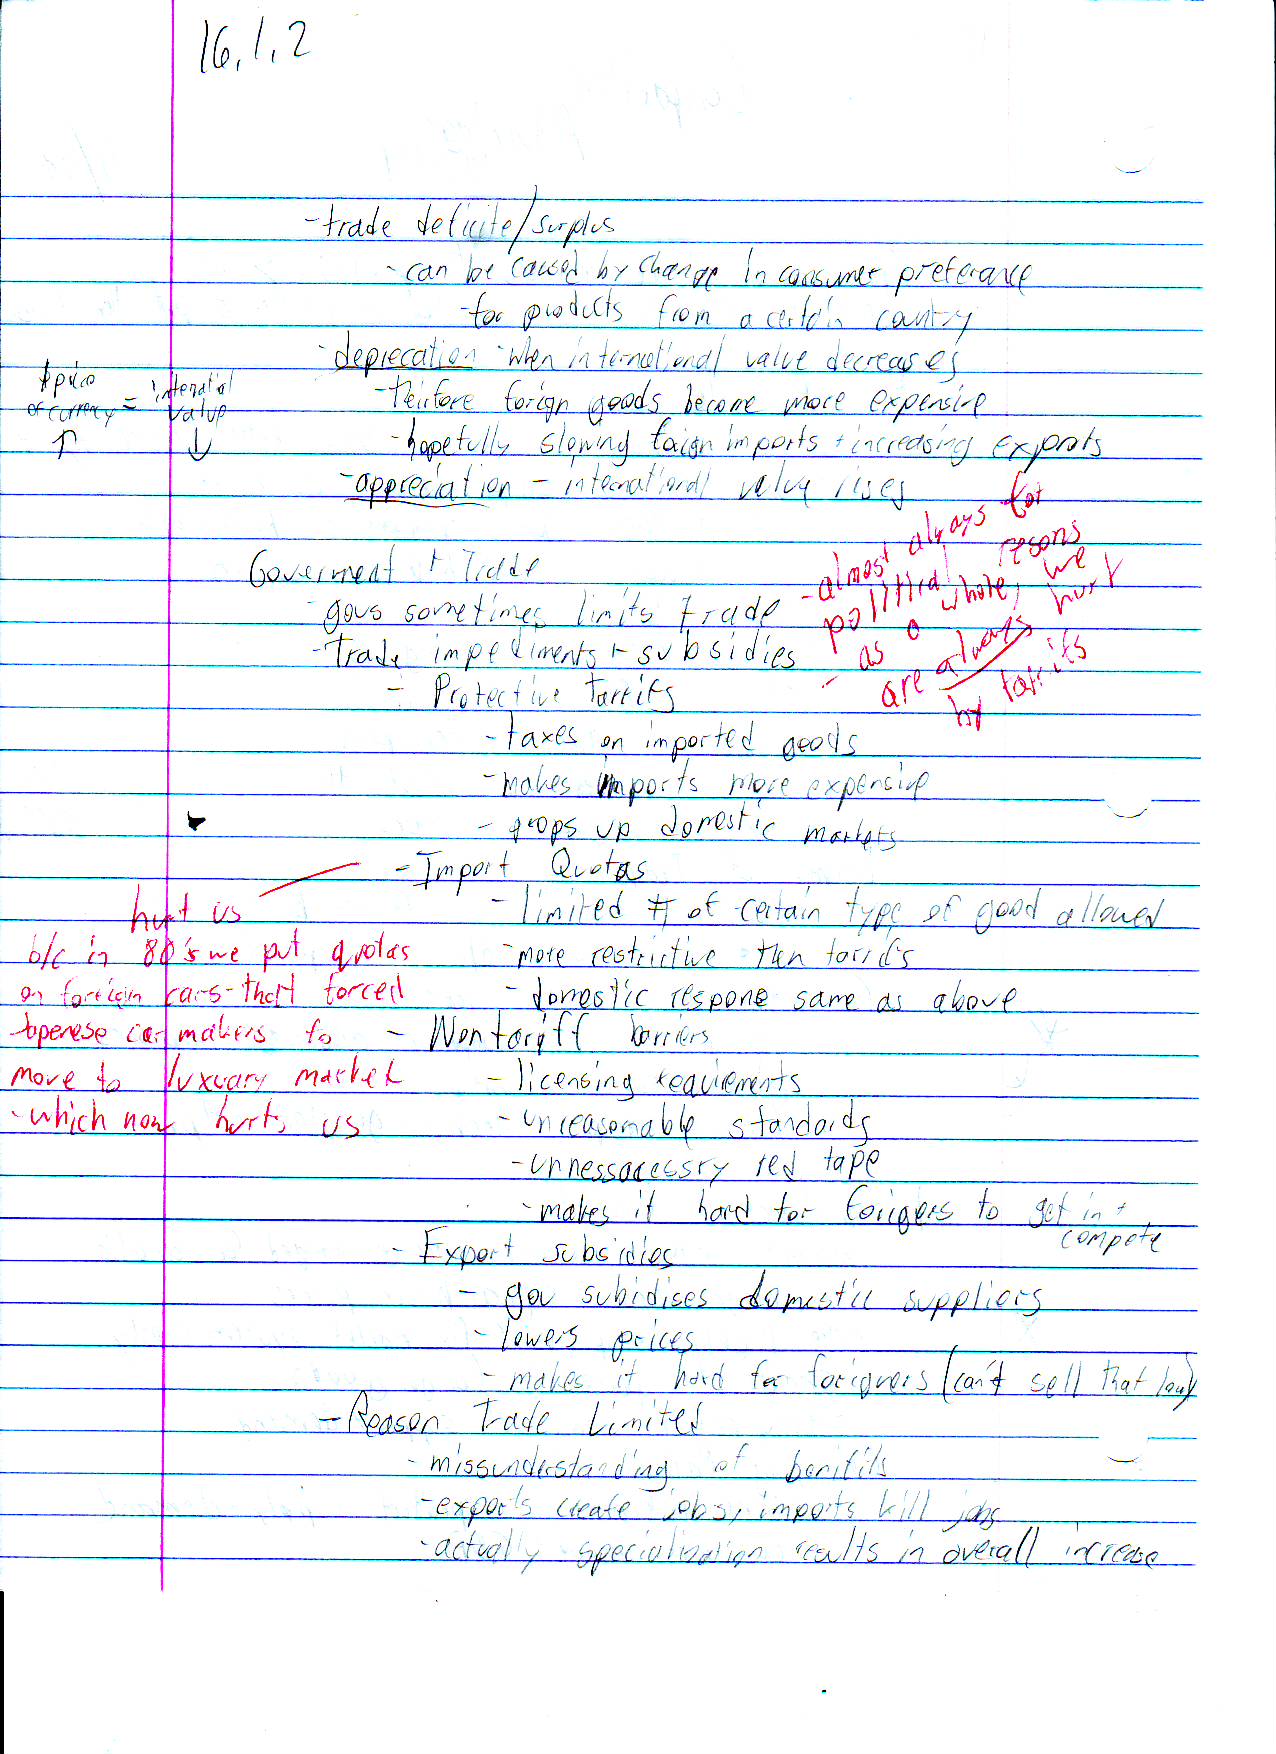 16.1.2
-trade deficite/surplus
-can be caused by change in consumer preferance
-for products from a certain country
-deprecation -when international value decreases
$price
of currency = internatial value
↑ ↓
-theirfore forign goods become more expensive
-hopefully slowing forign imports + increasing exports
-appreciation - international value rises
Goverment + Trade
-govs sometimes limits trade
-Trade impediments + subsidies
-almost always for
political resons
- as a whole, we
are always hurt
by tarrifs
- Protective Tarrifs
-taxes on imported goods
-makes imports more expensive
- props up domestic markets
- Import Quotas
-limited # of certain type of good allowed
-more restrictive than tarrifs
-domestic respone same as above
hurt us
b/c in 80's we put quotas
on foreign cars-that forced
Japenese car makers to
move to luxuary market
-which now hurts us
- Nontariff barriers
-licensing requirements
-unreasonable standards
-unnessacessry red tape
-makes it hard for forigers to get in +
compete
- Export subsidies
- gov subidises domestic suppliors
-lowers prices
-makes it hard for forigners (can't sell that low)
-Reason Trade Limited
-missunderstanding of benifits
-exports create jobs, imports kill jobs
-actually specialization results in overall increase